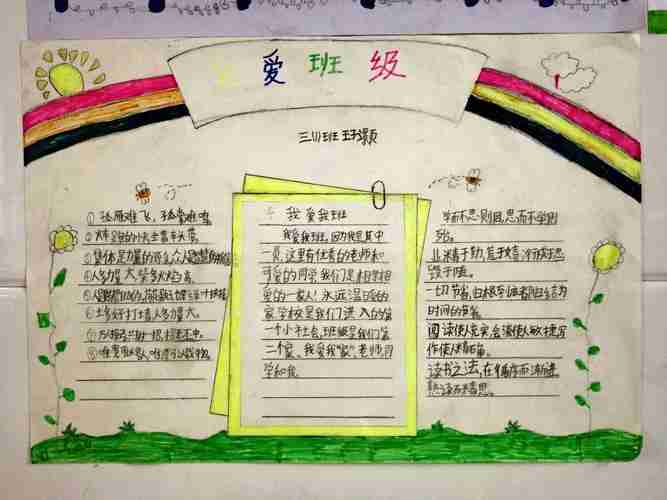 爱班级
三(1)班
①孤雁难飞,孤掌难鸣
②火车跑的快全靠车头带。
③集体是力量的源泉,众人是智慧的摇篮
④人多力量大,柴多火焰高
⑥土多好打墙,人多力量大。
⑦万人操弓,共射一招,招无不中。
我爱我班
我爱我班,因为我是其中
一员,这里有任喜的老师和
可爱的同学,我们是相亲相
爱的一家人!永远温暖的
家,学校是我们进入的第
一个小社会,班级是我们第
二个家。我爱我"家"老师,同
学和我。
学而不思则罔,思而不学则
殆。
业精于勤,荒于嬉,行成于思
毁于随。
一切节省,归根到底都归结为
时间的节省。
阅读使人充实,会谈使人敏捷,写
作使人精确。
读书之法,在循序而渐进
熟读而精思。